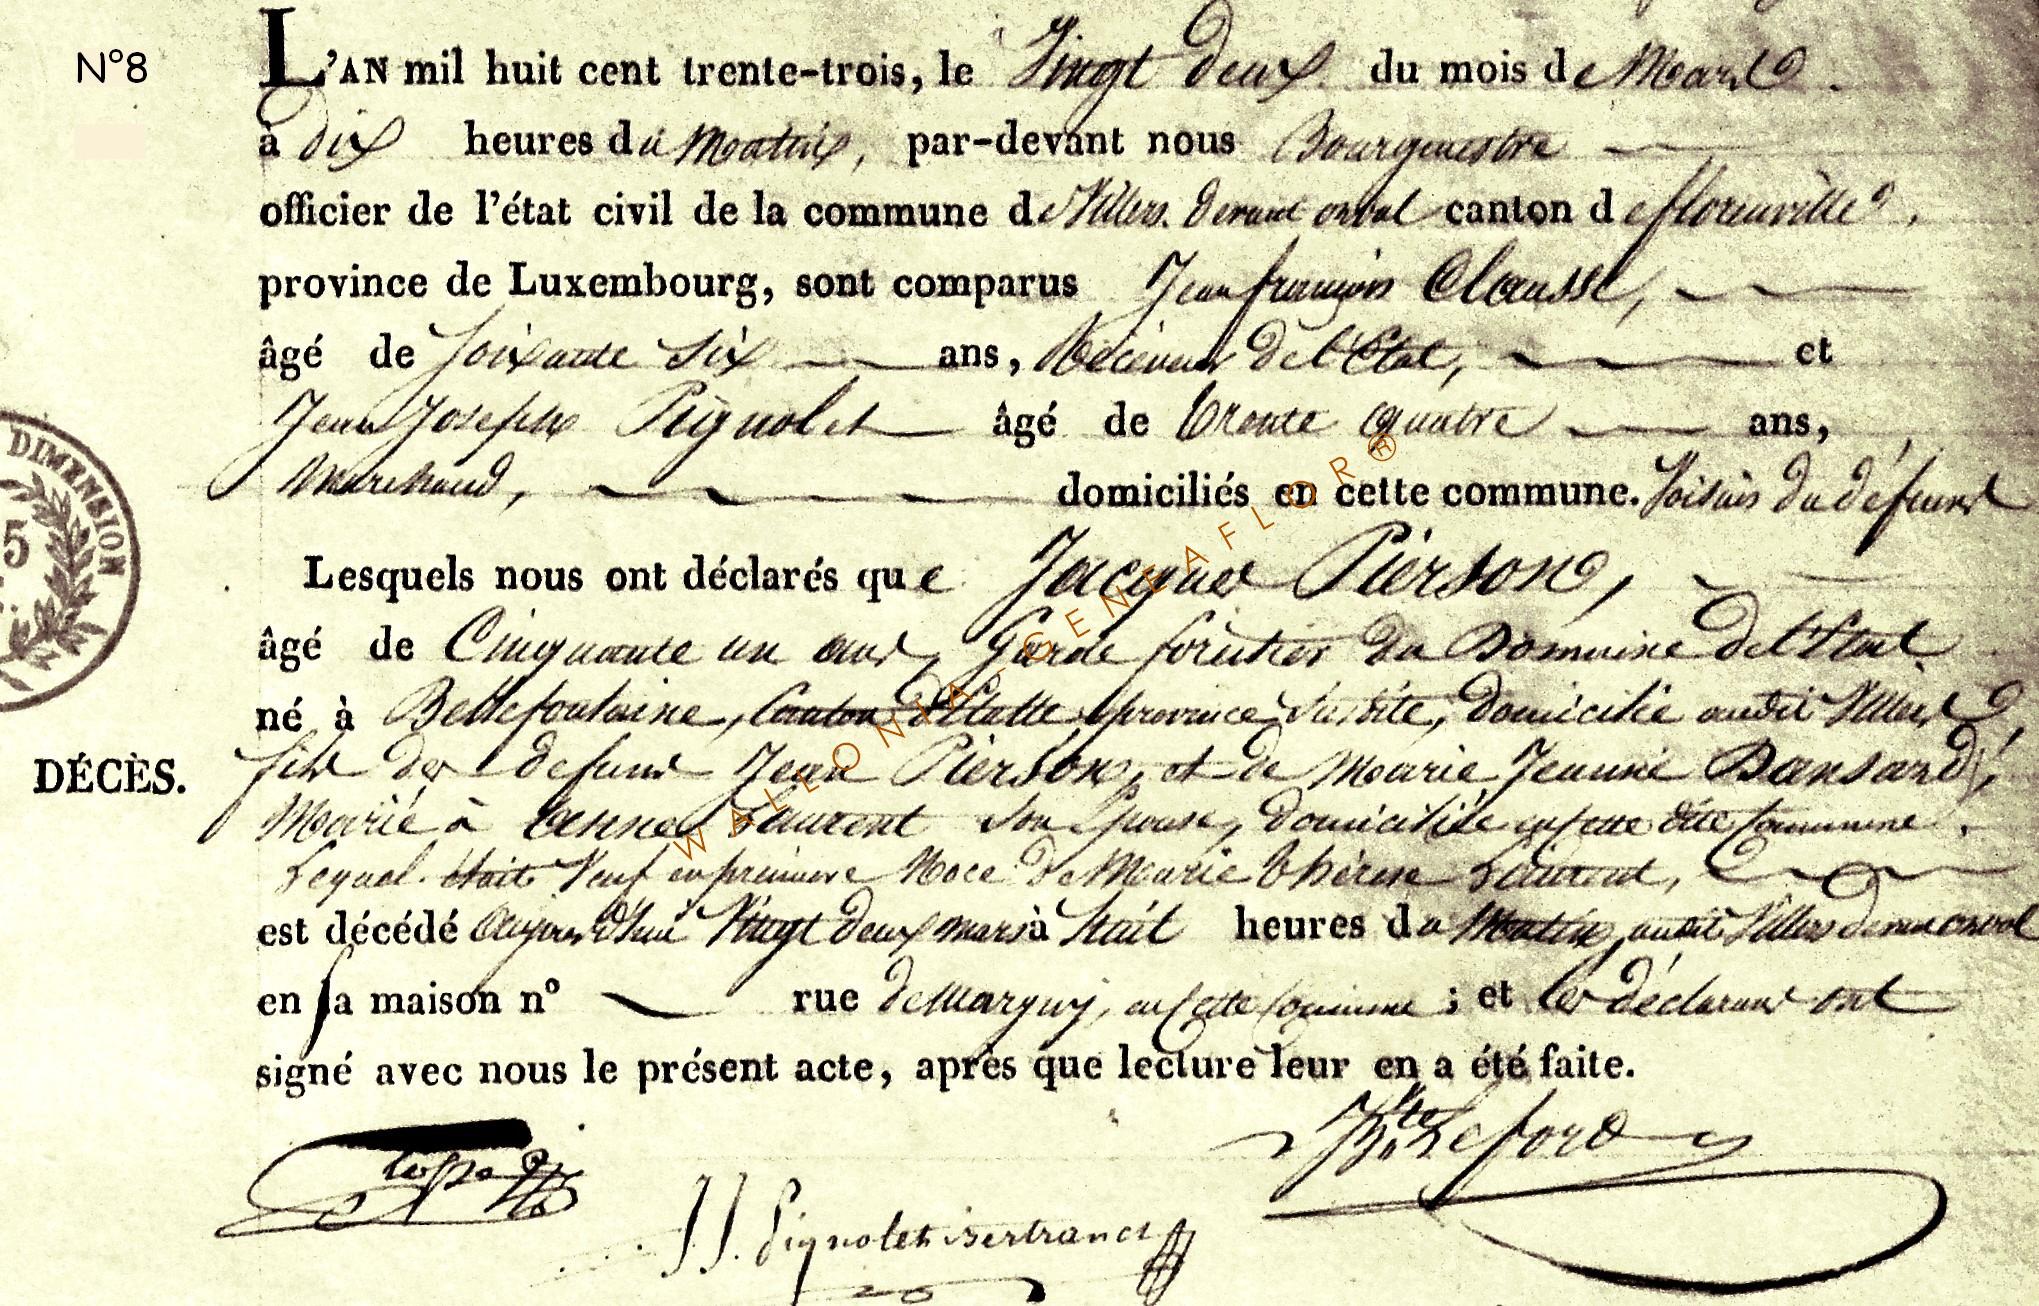 N°8
L'AN mil huit cent trente-trois, le Vingt deux du mois de Mars
à dix heures du Matin, par-devant nous Bourgmestre
officier de l'état civil de la commune de Villers devant orval canton de florenville,
province de Luxembourg, sont comparus Jean françois Clausse,
âgé de Soixante Six ans, Receveur de l'Etat, et
Jean Joseph Pignolet âgé de trente quatre ans,
Marchand, domiciliés en cette commune. Voisins du défunt
Lesquels nous ont déclarés que Jacques Pierson,
âgé de Cinquante un ans, Garde forestier du Domaine de l'Etat
né à Bellefontaine, Canton d'Etalle province susdite, domicilié audit Villers,
fils des defunts Jean Pierson, et de Marie Jeanne Dansard,
Marié à Anne Laurent son Epouse, domiciliée en cette dite Commune.
Lequel était Veuf en première Noce de Marie thérèse Laurent,
est décédé aujourd'hui Vingt deux mars à huit heures du Matin, audit Villers devant orval
en sa maison n° rue de Margny, en cette Commune; et les déclarans ont
signé avec nous le présent acte, après que lecture leur en a été faite.
DÉCÈS.
DIMENSION
5
Leford
J J. Pignolet Bertrand
WALLONIA-GENEAFLOR®